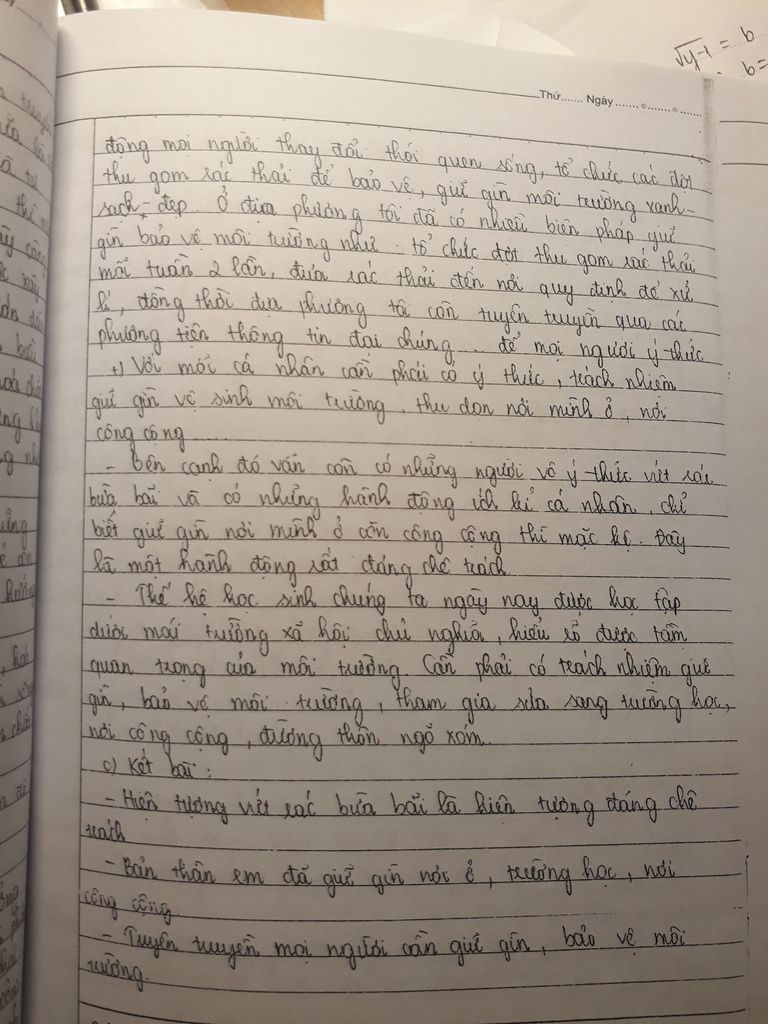 √y-1 = b
b =
Thứ....... Ngày ....... ........ .......
động mọi người thay đổi thói quen sống, tổ chức các đợt
thu gom rác thải để bảo vệ, giữ gìn môi trường xanh-
sạch-đẹp. Ở địa phương tôi đã có nhiều biện pháp giữ
gìn bảo vệ môi trường như: tổ chức đợt thu gom rác thải
mỗi tuần 2 lần, đưa rác thải đến nơi quy định để xử
lí, đồng thời địa phương tôi còn tuyên truyền qua các
phương tiện thông tin đại chúng ... để mọi người ý thức
+) Với mỗi cá nhân cần phải có ý thức, trách nhiệm
giữ gìn vệ sinh môi trường, thu dọn nơi mình ở, nơi
công cộng ....
- Bên cạnh đó vẫn còn có những người vô ý thức vứt rác
bừa bãi và có những hành động ích kỉ cá nhân, chỉ
biết giữ gìn nơi mình ở còn công cộng thì mặc kệ. Đây
là một hành động rất đáng chê trách
- Thế hệ học sinh chúng ta ngày nay được học tập
dưới mái trường xã hội chủ nghĩa, hiểu rõ được tầm
quan trọng của môi trường. Cần phải có trách nhiệm giữ
gìn, bảo vệ môi trường, tham gia sửa sang trường học,
nơi công cộng, đường thôn ngõ xóm.
c) Kết bài:
- Hiện tượng vứt rác bừa bãi là hiện tượng đáng chê
trách
- Bản thân em đã giữ gìn nơi ở, trường học, nơi
công cộng
- Tuyên truyền mọi người cần giữ gìn, bảo vệ môi
trường.